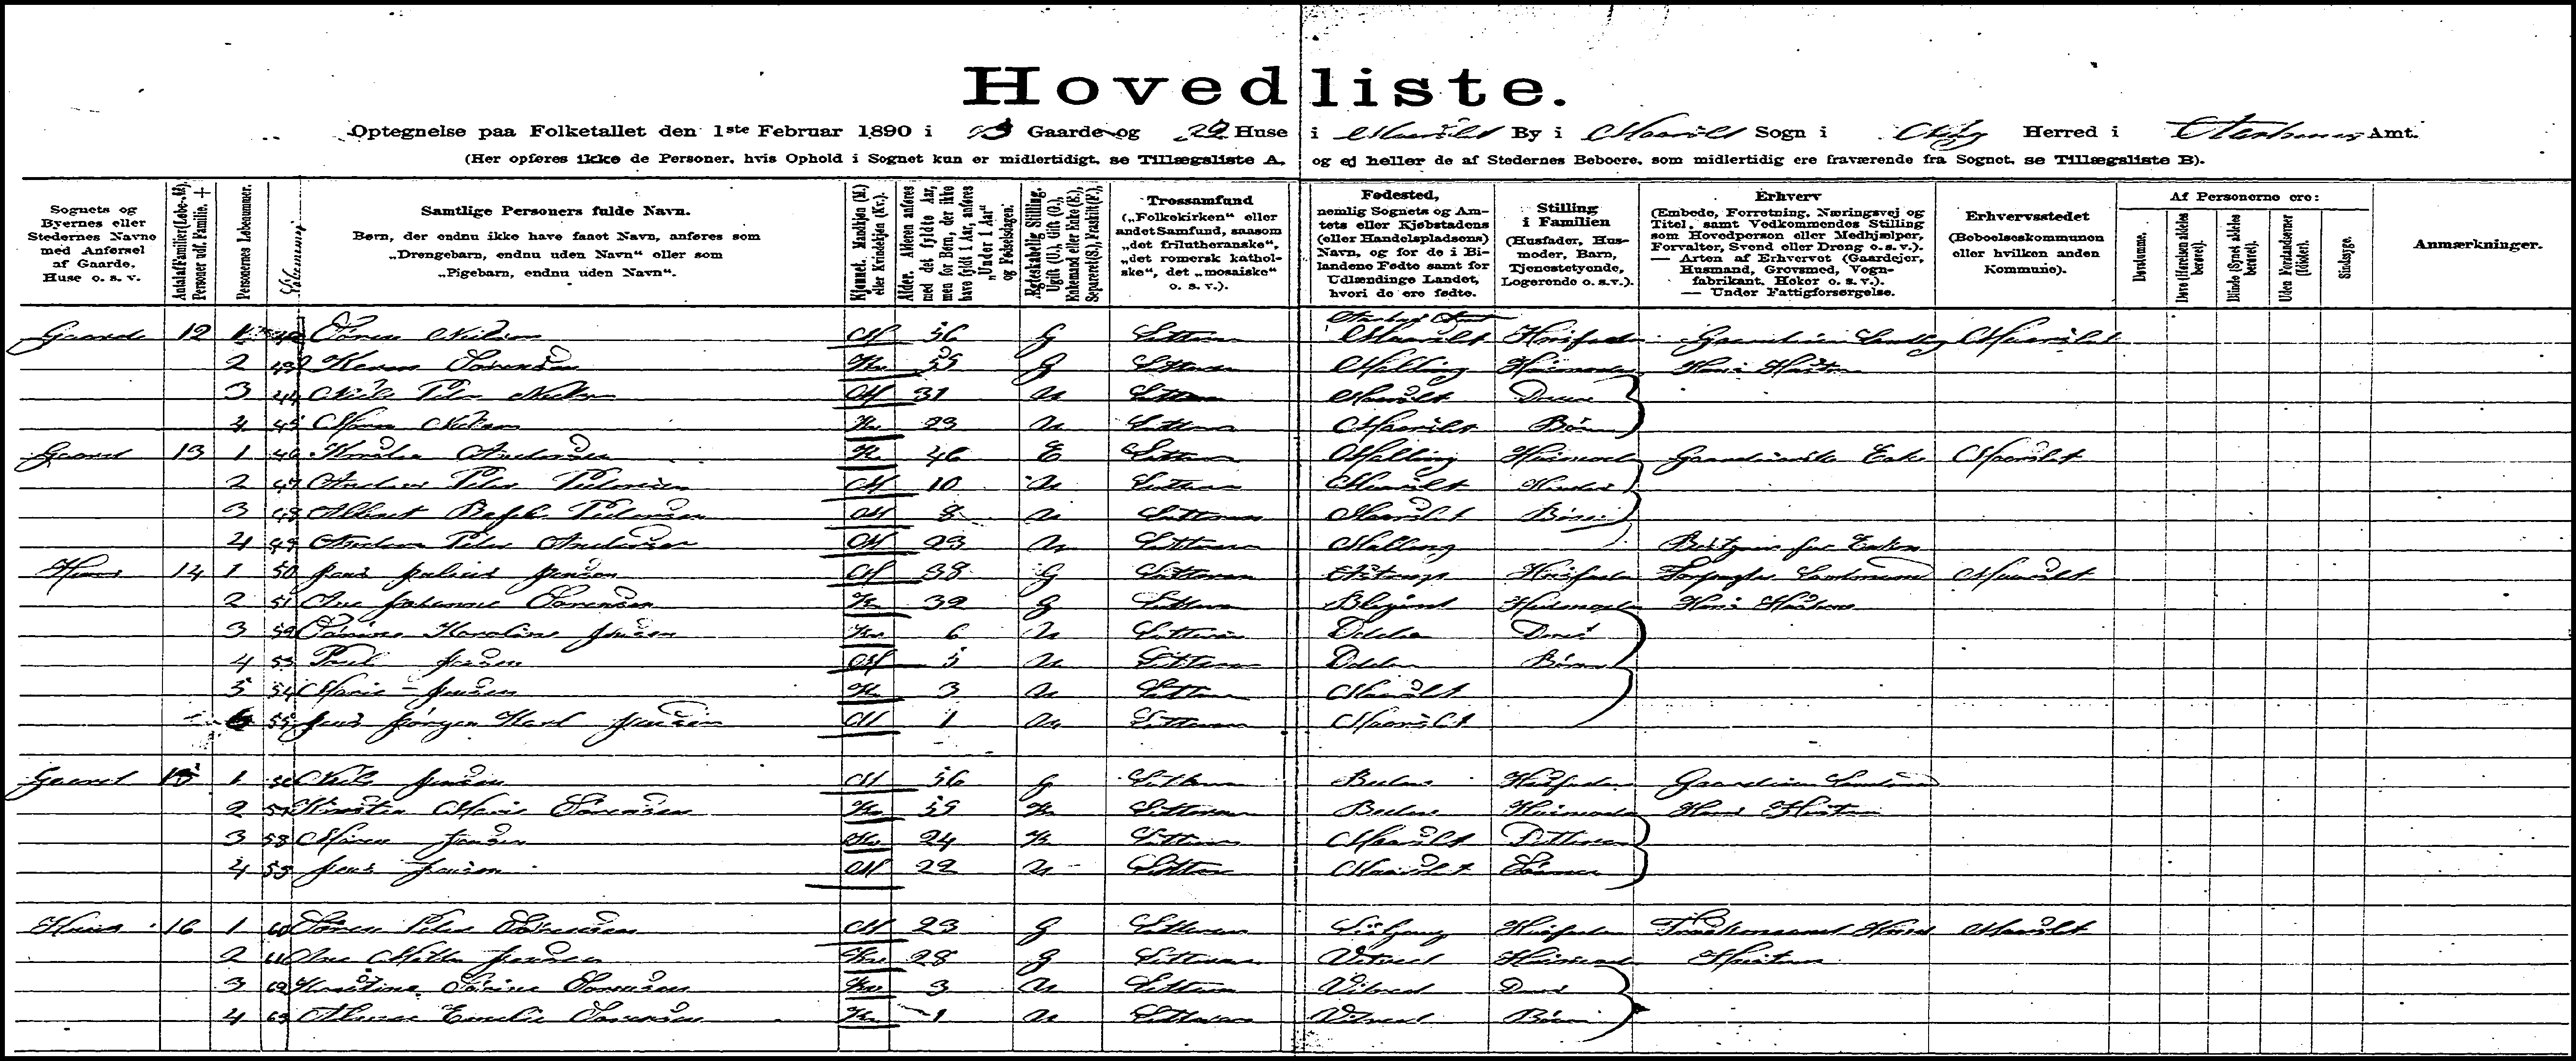 Hovedliste.
Optegnelse paa Folketallet den 1ste Februar 1890 i Gaarde og 22 Huse i Maarslet By i Maarslet Sogn i Ning Herred i Aarhuus Amt.
(Her opføres ikke de Personer, hvis Ophold i Sognet kun er midlertidigt, se Tillægsliste A, og ej heller de af Stedernes Beboere, som midlertidig ere fraværende fra Sognet, se Tillægsliste B).
Sognets og Byernes eller Stedernes Navne med Anførsel af Gaarde, Huse o. s. v.
Personernes Løbenummer.
Samtlige Personers fulde Navn.
Børn, der endnu ikke have faaet Navn, anføres som „Drengebarn, endnu uden Navn“ eller som „Pigebarn, endnu uden Navn“.
Kjønnet. Mandkjøn (M.) eller Kvindekjøn (Kv.).
Alder. Alderen anføres med det fyldte Aar, men for Børn, der ikke have fyldt 1 Aar, anføres „Under 1 Aar“ og Fødselsdagen.
Ægteskabelig Stilling. Ugift (U.), Gift (G.), Enkemand eller Enke (E.), Separeret (S.), Fraskilt (F.).
Trossamfund („Folkekirken“ eller andet Samfund, saasom „det frilutheranske“, „det romersk katholske“, det „mosaiske“ o. s. v.).
Fødested, nemlig Sognets og Amtets eller Kjøbstadens (eller Handelspladsens) Navn, og for de i Bilandene Fødte samt for Udlændinge Landet, hvori de ere fødte.
Stilling i Familien (Husfader, Husmoder, Barn, Tjenestetyende, Logerende o. s. v.).
Erhverv (Embede, Forretning, Næringsvej og Titel, samt Vedkommendes Stilling som Hovedperson eller Medhjælper, Forvalter, Svend eller Dreng o. s. v.). — Arten af Erhvervet (Gaardejer, Husmand, Grovsmed, Vognfabrikant, Høker o. s. v.). — Under Fattigforsørgelse.
Erhvervsstedet (Beboelseskommunen eller hvilken anden Kommune).
Af Personerne ere:
Døvstumme.
Døve (Hørelsen aldeles berøvet).
Blinde (Synet aldeles berøvet).
Uden Forstandsevner (Idioter).
Sindssyge.
Anmærkninger.
Gaard 12 1 Søren Nielsen M 56 G Luthersk Maarslet Husfader Maarslet
2 43 Karen Sørensen Kv 55 G Luthersk Malling Husmoder Hans Hustru
3 44 Niels Peter Nielsen M 31 U Luthersk Maarslet Deres
4 45 Maren Nielsen Kv 23 U Luthersk Maarslet Børn
Gaard 13 1 46 Andersen Kv 46 E Luthersk Malling Husmoder Enke Maarslet
2 47 Anders Peter Pedersen M 10 U Luthersk Maarslet
3 48 Albert Pedersen M 8 U Luthersk Maarslet Børn
4 49 Anders Peter Andersen M 23 U Luthersk Malling Bestyrer for Enken
Huus 14 1 50 Jens Julius Jensen M 38 G Luthersk Astrup Husfader Forpagter Landmand Maarslet
2 51 Ane Johanne Sørensen Kv 32 G Luthersk Blegind Husmoder Hans Hustru
3 52 Karoline Jensen Kv 6 U Luthersk Odder Deres
4 53 Poul Jensen M 5 U Luthersk Odder Børn
5 54 Marie Jensen Kv 3 U Luthersk Maarslet
6 55 Jens Jørgen Karl Jensen M 1 U Luthersk Maarslet
Gaard 15 1 56 Niels Jensen M 56 G Luthersk Beder Husfader
2 57 Kirstin Marie Sørensen Kv 55 Luthersk Beder Husmoder Hans Hustru
3 58 Maren Jensen Kv 24 Luthersk Maarslet
4 59 Jens Jensen M 22 U Luthersk Maarslet
Huus 16 1 60 Søren Peter Sørensen M 23 G Luthersk Husfader Maarslet
2 61 Ane Mette Jensen Kv 28 G Luthersk Vitved Husmoder Hustru
3 62 Kirstine Sørine Sørensen Kv 3 U Luthersk Vitved Deres
4 63 Emilie Sørensen Kv 1 U Luthersk Vitved Børn